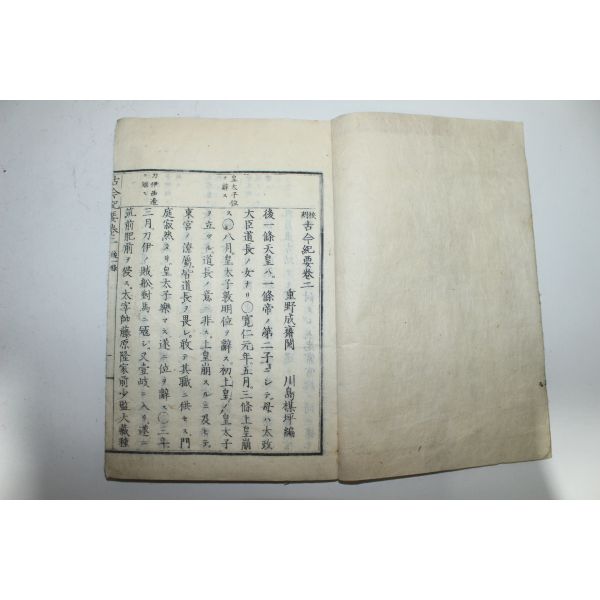 校閲 古今紀要卷二
重野成齋閲　川島楳坪編
後一條天皇ハ一條帝ノ第二子ニシテ母ハ太政
大臣道長ノ女ナリ○寛仁元年五月三條上皇崩
ス○八月皇太子敦明位ヲ辭ス初上皇ノ皇太子
ヲ立ツル道長ノ意ニ非ス上皇崩スルニ及ヒテ
東宮ノ僚屬道長ヲ畏レ敢テ其職ニ供セス門
庭寂然タリ皇太子樂マス遂ニ位ヲ辭ス○三年
三月刀伊ノ賊船對馬ニ寇シ又壹岐ニ入リ遂ニ
筑前肥前ヲ侵ス太宰帥藤原隆家前少監大藏種
皇太子位ヲ辭ス
刀伊
古今紀要卷二